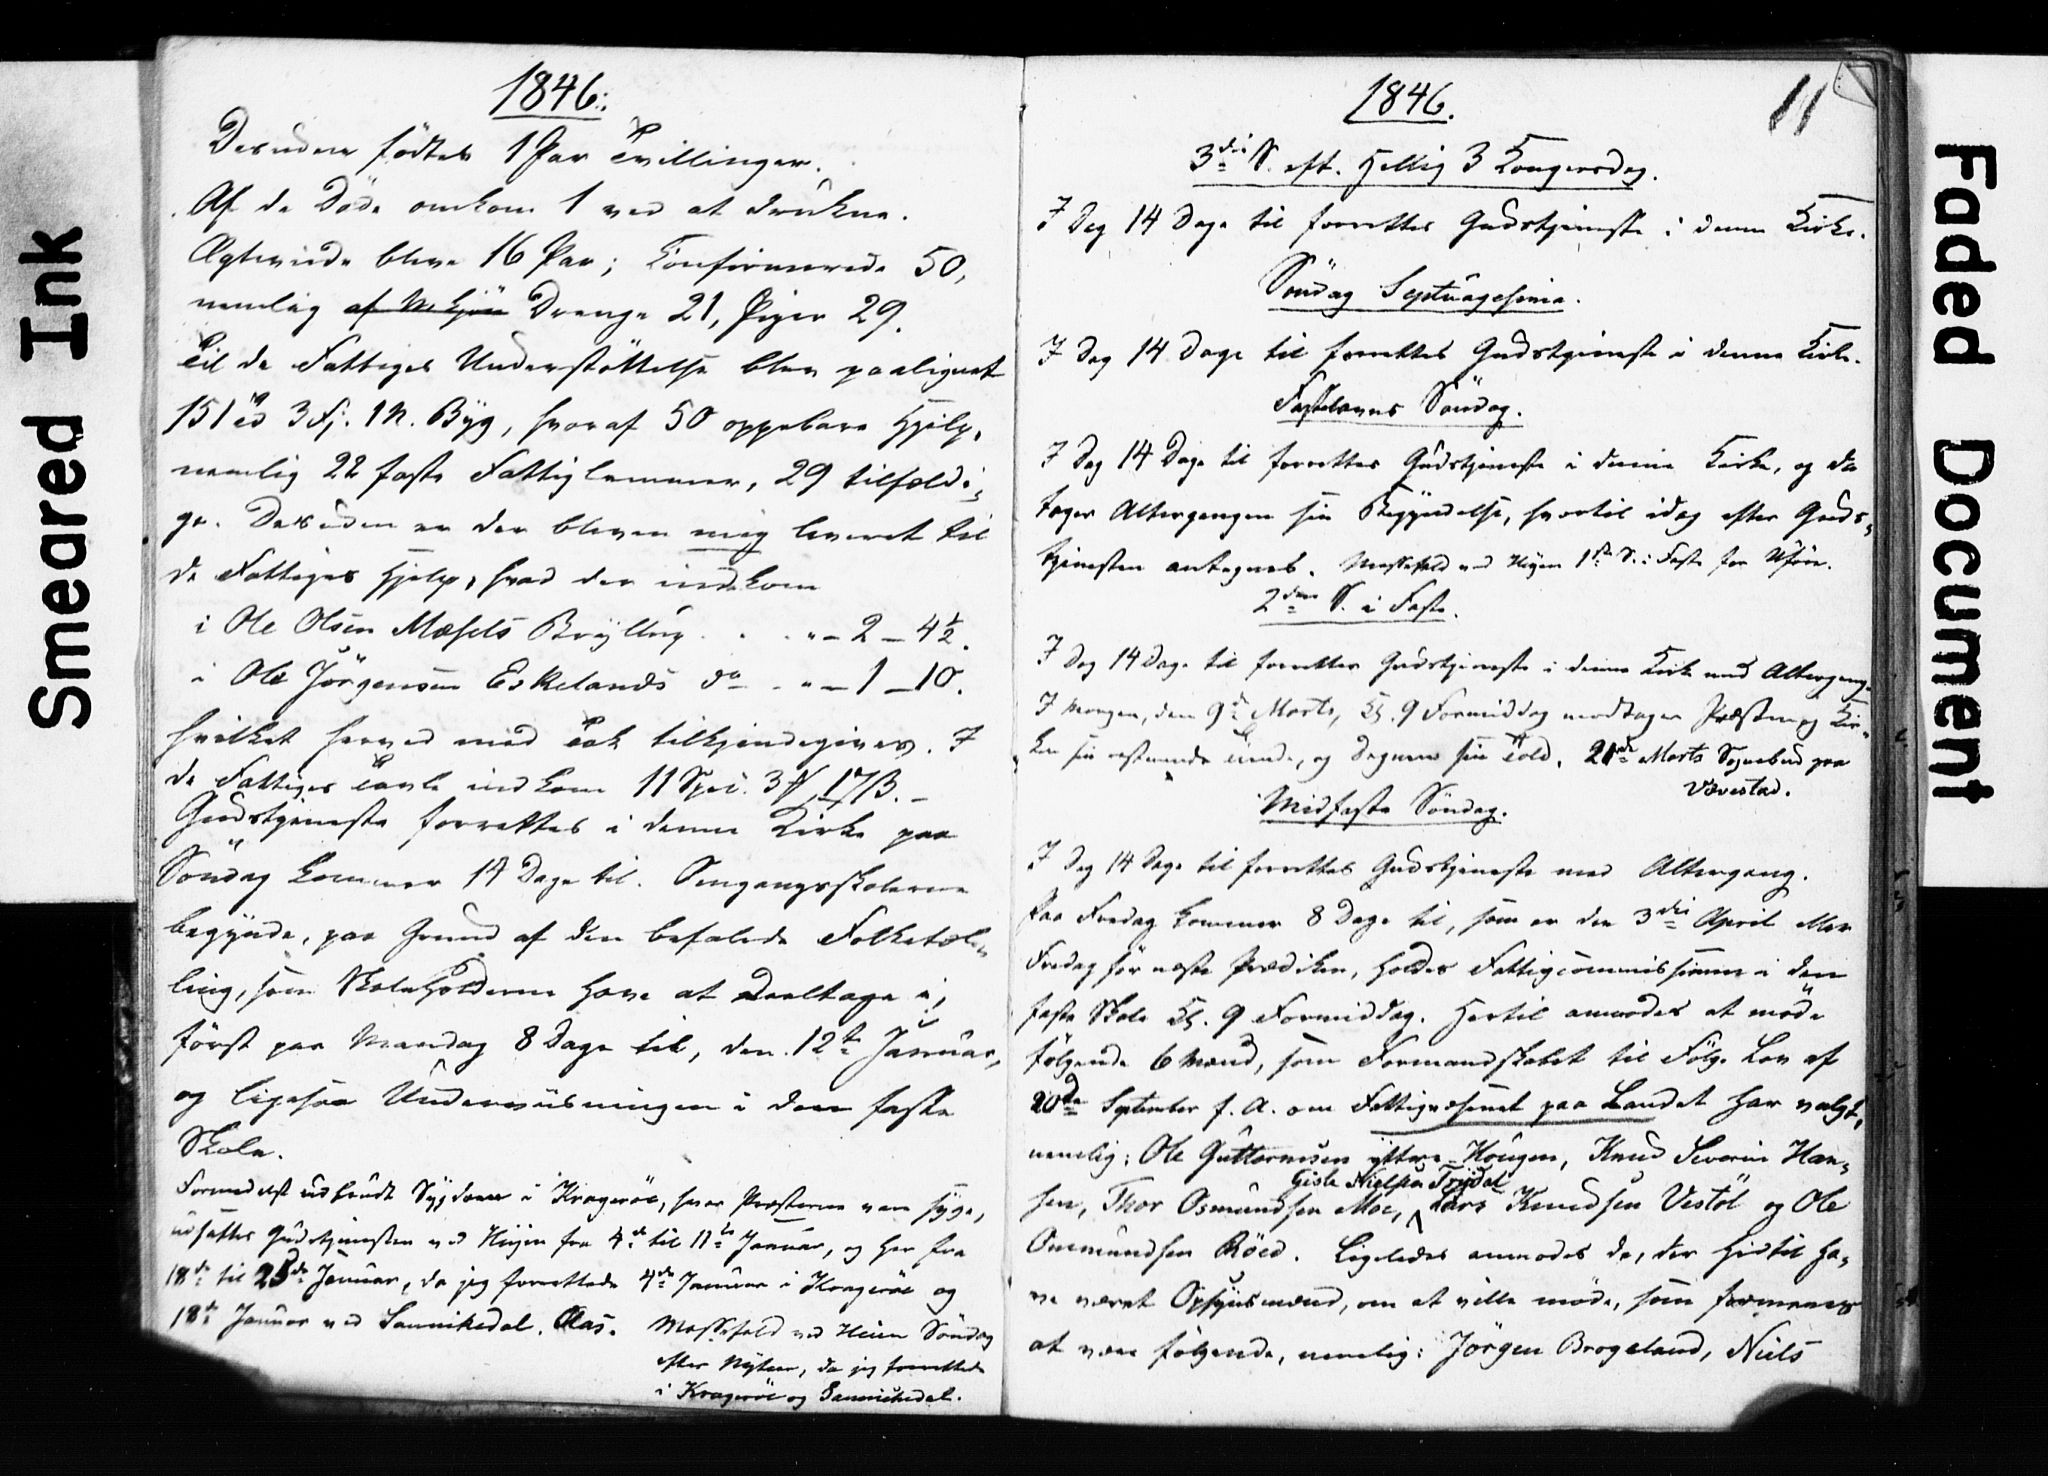 Smeared Ink
1846.
Desuden födtes 1 Par Tvillinger.
Af de Döde omkom 1 ved at drukne.
Ægteviede bleve 16 Par; Confirmerede 50,
nemlig af Drenge 21, Piger 29.
Til de Fattiges Understöttelse blev paalignet
151 3 Fj. 1 M. Byg, hvoraf 50 oppebare Hjelp,
nemlig 22 faste Fattiglemmer, 29 tilfældi-
ge. Desuden er der bleven mig leveret til
de Fattiges Hjelp, hvad der indkom
i Ole Olsen Mæsels Bryllup . . . " - 2 - 4½.
i Ole Jörgensen Eskelands do . " - 1 - 10.
hvilket herved med Tak tilkjendegives. I
de Fattiges Tavle indkom 11 Spec. 3 17 β. -
Gudstjeneste forrettes i denne Kirke paa
Söndag kommer 14 Dage til. Omgangsskolerne
begynde, paa Grund af den befalede Folketæl-
ling, som Skoleholderne have at deeltage i,
först paa Mandag 8 Dage til, den 12te Januar,
og ligesaa Underviisningen i den faste
Skole.
Formedelst udbrudt Sygdom i Krageröe, hvor Præsterne vare syge,
udsattes Gudstjenesten ved Heien fra 4de til 11te Januar, og her fra
18de til 25de Januar, da jeg forrettede 4de Januar i Krageröe og
18de Januar ved Sannikedal. Aas.
Messefald ved Heien Söndag
efter Nytaar, da jeg forrettede
i Krageröe og Sannikedal.
1846.
11
3die S. eft. Hellig 3 Kongersdag.
I Dag 14 Dage til forrettes Gudstjeneste i denne Kirke.
Söndag Septuagesima.
I Dag 14 Dage til forrettes Gudstjeneste i denne Kirke.
Fastelavns Söndag.
I Dag 14 Dage til forrettes Gudstjeneste i denne Kirke, og da
tager Altergangen sin Begyndelse, hvortil idag efter Guds-
tjenesten antegnes. Messefald ved Heien 1ste S. i Faste for Uföre.
2den S. i Faste.
I Dag 14 Dage til forrettes Gudstjeneste i denne Kirke med Altergang.
I Morgen, den 9de Marts, Kl. 9 Formiddag modtager Præsten og Kir-
ken sin resterende Tiende, og Degnen sin Told. 21de Marts Sognebud paa
Vævestad.
Midfaste Söndag.
I Dag 14 Dage til forrettes Gudstjeneste med Altergang.
Paa Fredag kommer 8 Dage til, som er den 3die April eller
Fredag för næste Prædiken, holdes Fattigcommissionen i den
faste Skole Kl. 9 Formiddag. Hertil anmodes at möde
fölgende 6 Mænd, som Formandskabet til Fölge Lov af
20de September f. A. om Fattigvæsenet paa Landet har valgt,
nemlig: Ole Guttormsen yttre-Hougen, Knud Severin Han-
Gisle Nielsen Trydal
sen, Thor Osmundsen Moe, Lars Knudsen Vestöl og Ole
Ommundsen Röed. Ligeledes anmodes de, der hidtil ha-
ve været Opsynsmænd, om at ville möde, som formenes
at være fölgende, nemlig: Jörgen Brogeland, Niels
Faded Document